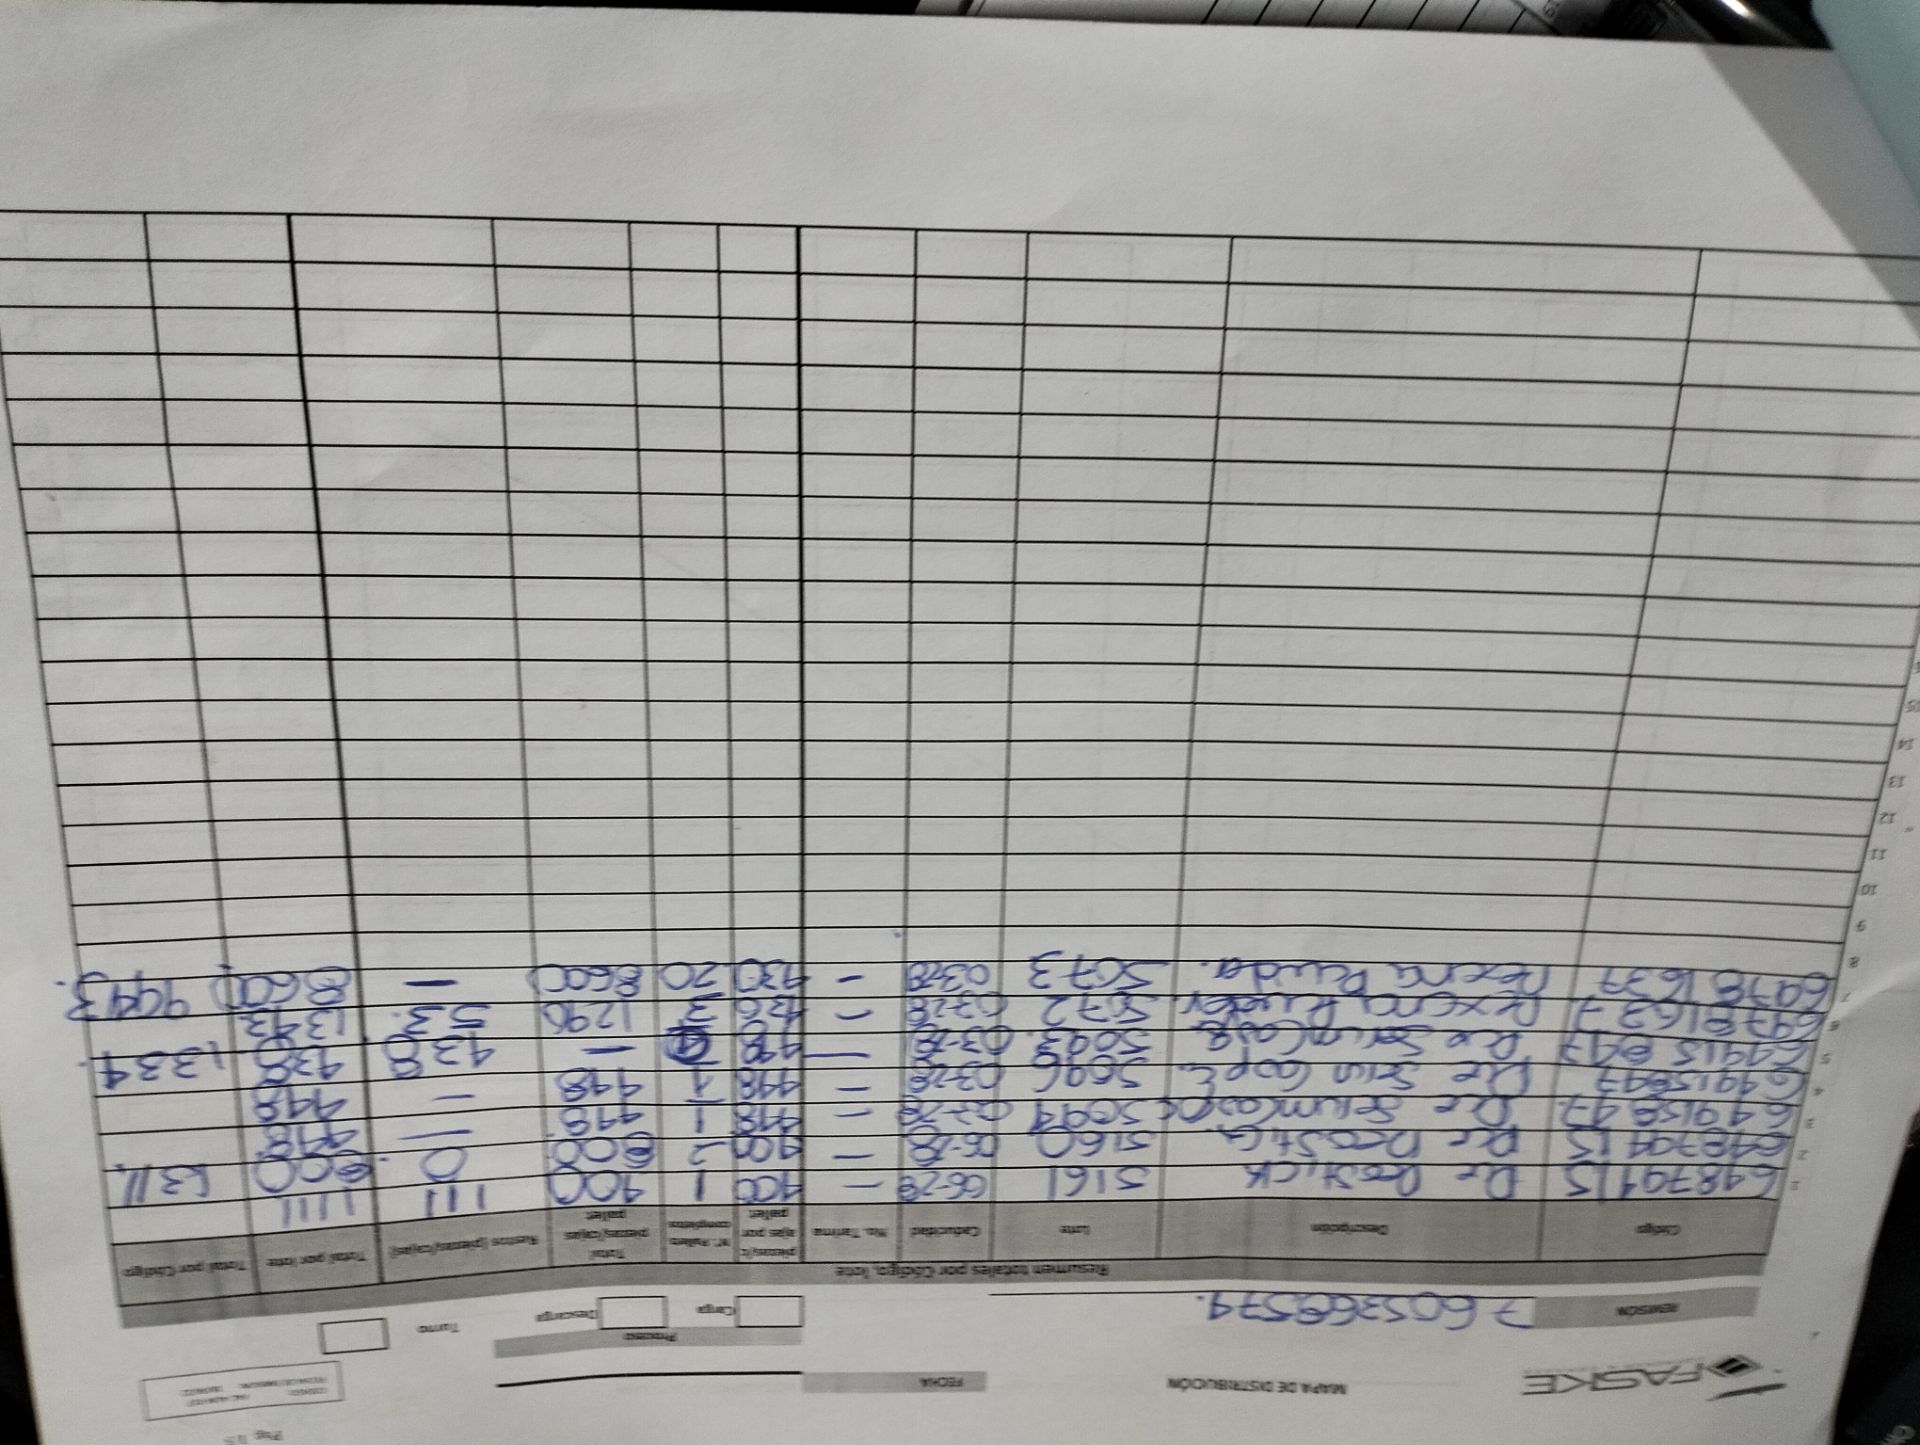 Pág 1/5
FASKE
MAPA DE DISTRIBUCIÓN
FECHA
REMISIÓN 7605368574.
Proceso
Carga Descarga
Turno
Resumen totales por Código, lote
Código Descripción Lote Caducidad No. Tarima piezas/c ajas por pallet N°. Pallets completos Total piezas/cajas pallet Restos (piezas/cajas) Total por lote Total por Código
1 64879415 De Deostick 5161 06-28 — 400 1 400 111 1111
2 64879415 De 5160 06-28 — 400 2 800 0 800 1311.
3 64915847 De 5094 03-28 — 448 1 448 — 448
4 64915847 De 5096 03-28 — 448 1 448 — 448
5 64915847 De 03-28 — 448 — 438 438 1334.
6 64781637 Rexona 5072 03-28 — 430 3 1290 53. 1343
7 64781637 Rexona Ruda. 5073 03-28 - 430 20 8600 — 8600 9943.
8
9
10
11
12
13
14
15